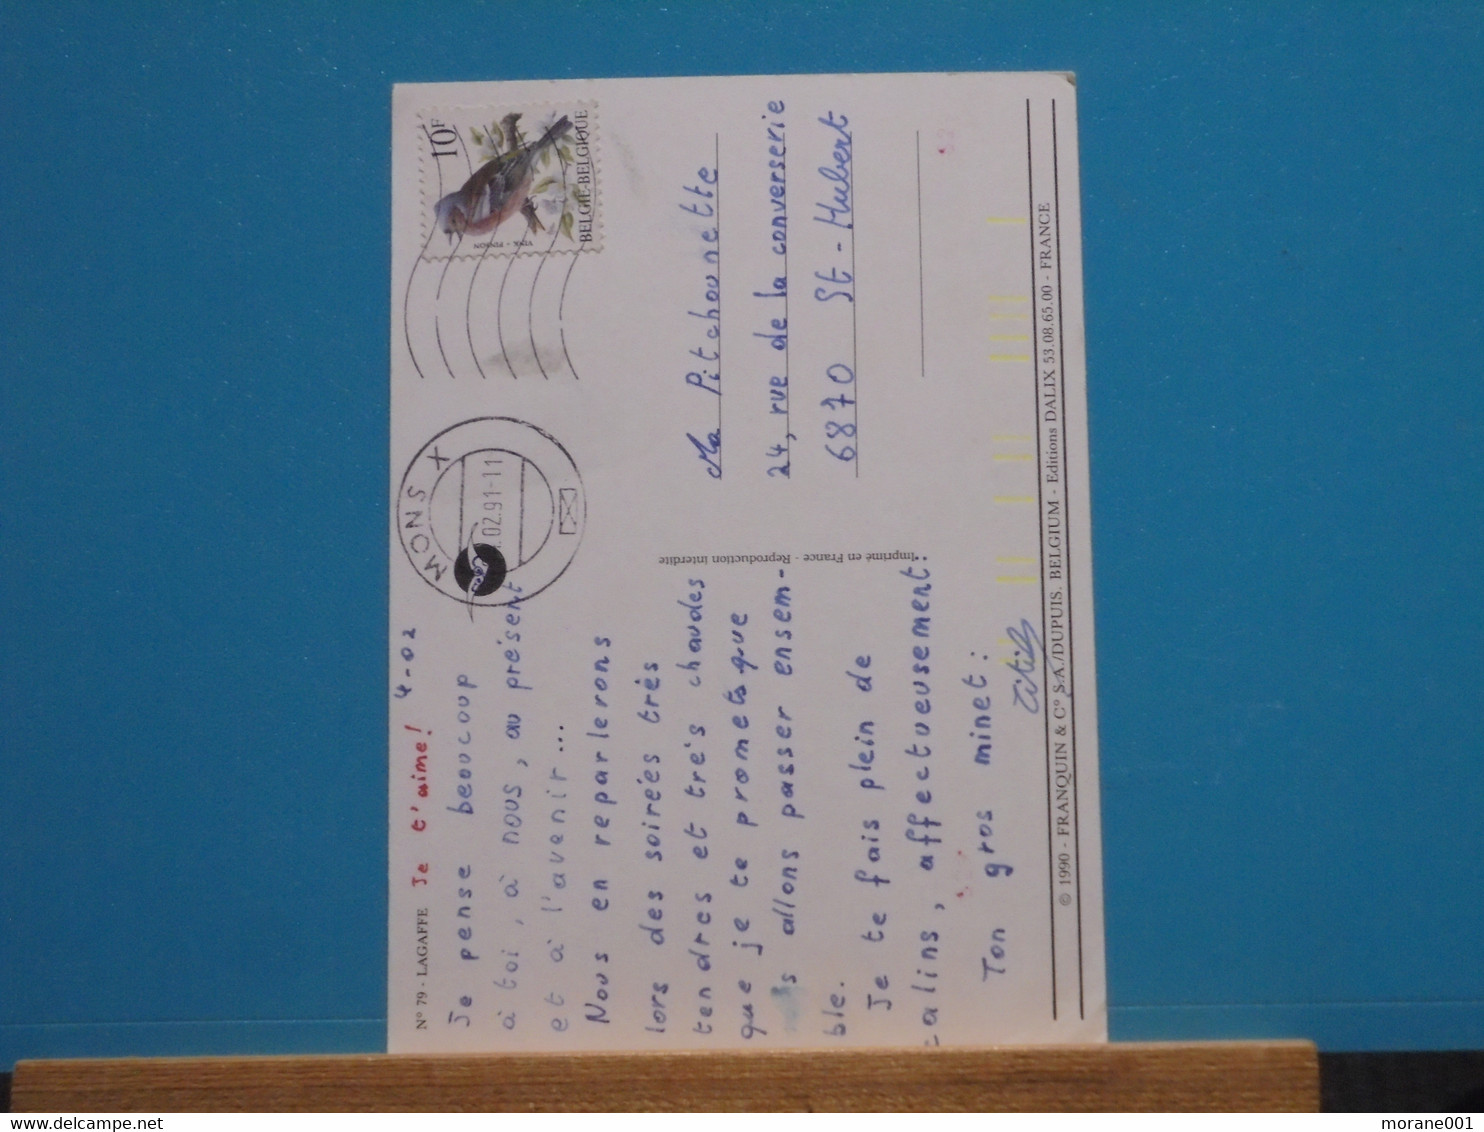 N° 79 - LAGAFFE Je t'aime! 4-02
Je pense beaucoup
à toi, à nous, au présent
et à l'avenir...
Nous en reparlerons
lors des soirées très
tendres et très chaudes
que je te promets que
allons passer ensem-
ble.
Je te fais plein de
calins, affectueusement.
Ton gros minet:
Imprimé en France - Reproduction interdite
MONS X
.02.91-11
10F
VINK - PINSON
BELGIE-BELGIQUE
Ma Pitchounette
24, rue de la converserie
6870 St-Hubert
© 1990 - FRANQUIN & C° S.A./DUPUIS. BELGIUM - Editions DALIX 53.08.65.00 - FRANCE
morane001